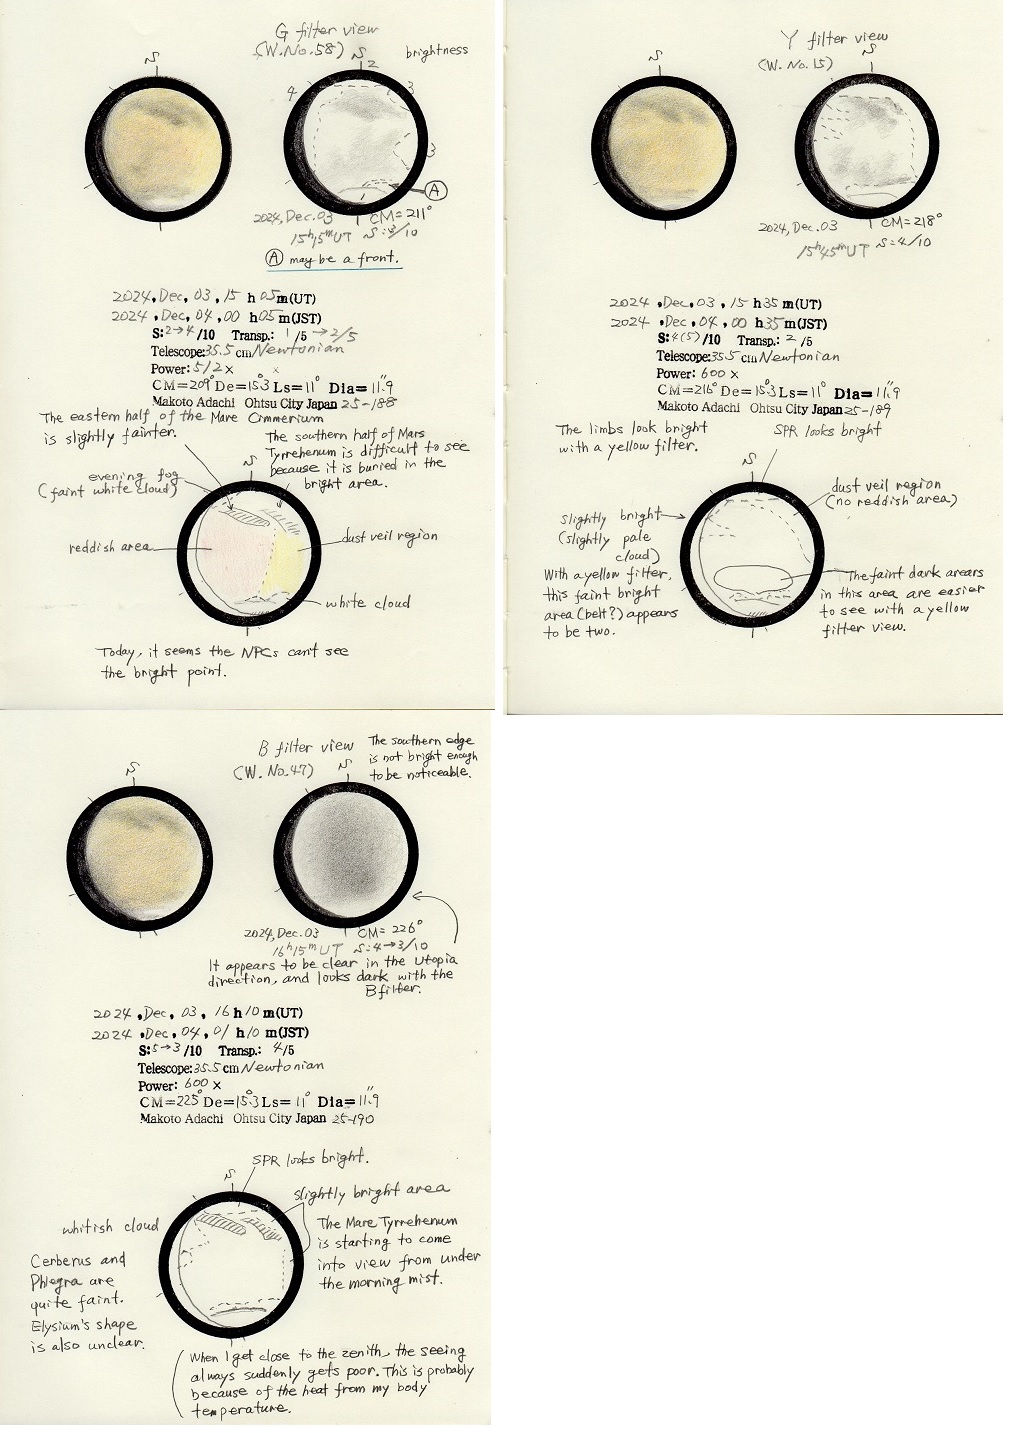 G filter view
(W.No.58)
S
S
brightness
2
4
3
3
A
2024, Dec. 03
CM=211°
15h15m UT S:3/10
A may be a front.
2024, Dec, 03, 15 h 05 m(UT)
2024, Dec, 04, 00 h 05 m(JST)
S:2→4/10 Transp.: 1/5→2/5
Telescope:35.5 cm Newtonian
Power: 512 x
CM=209° De=15.3° Ls=11° Dia=11.9"
Makoto Adachi Ohtsu City Japan 25-188
The eastern half of the Mare Cimmerium
is slightly fainter.
The southern half of Mars
Tyrrehenum is difficult to see
because it is buried in the
bright area.
S
evening fog
(faint white cloud)
reddish area
dust veil region
white cloud
Today, it seems the NPCs can't see
the bright point.
Y filter view
(W. No. 15)
S
S
2024, Dec. 03
CM=218°
15h45m UT S=4/10
2024, Dec, 03, 15 h 35 m(UT)
2024, Dec, 04, 00 h 35 m(JST)
S:4(5)/10 Transp.: 2/5
Telescope:35.5 cm Newtonian
Power: 600 x
CM=216° De=15.3° Ls=11° Dia=11.9"
Makoto Adachi Ohtsu City Japan 25-189
The limbs look bright
with a yellow filter.
SPR looks bright
S
dust veil region
(no reddish area)
slightly bright
(slightly pale
cloud)
With a yellow filter,
this faint bright
area (belt?) appears
to be two.
The faint dark arears
in this area are easier
to see with a yellow
filter view.
B filter view
(W. No.47)
S
S
The southern edge
is not bright enough
to be noticeable.
2024, Dec. 03
CM= 226°
16h15m UT S:4→3/10
It appears to be clear in the Utopia
direction, and looks dark with the
B filter.
2024, Dec, 03, 16 h 10 m(UT)
2024, Dec, 04, 01 h 10 m(JST)
S:5→3/10 Transp.: 4/5
Telescope:35.5 cm Newtonian
Power: 600 x
CM=225° De=15.3° Ls=11° Dia=11.9"
Makoto Adachi Ohtsu City Japan 25-190
SPR looks bright.
S
slightly bright area
whitish cloud
The Mare Tyrrehenum
is starting to come
into view from under
the morning mist.
Cerberus and
Phlegra are
quite faint.
Elysium's shape
is also unclear.
When I get close to the zenith, the seeing
always suddenly gets poor. This is probably
because of the heat from my body
temperature.